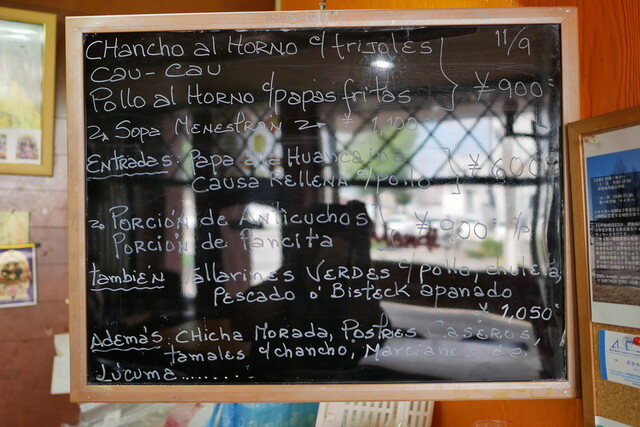 CHancho al HORNO c/ frijoles 11/9
CAU - CAU
Pollo al HORNO c/ papas fritas ¥ 900=
Sopa MENESTRÓN ¥ 1,100
ENTRADAS: PAPA a la Huancaina
CAUSA RELLENA c/ pollo ¥ 600=
PORCIÓN de ANTICUCHOS
PORCIÓN de PANCITA ¥ 900= c/p
también tallarines VERDES c/ pollo, chuleta,
PESCADO ó BISTECK apanado
¥ 1,050=
ADEMÁS: CHICHA MORADA, POSTRES CASEROS,
tamales c/ chancho, Marcianos de
LÚCUMA........